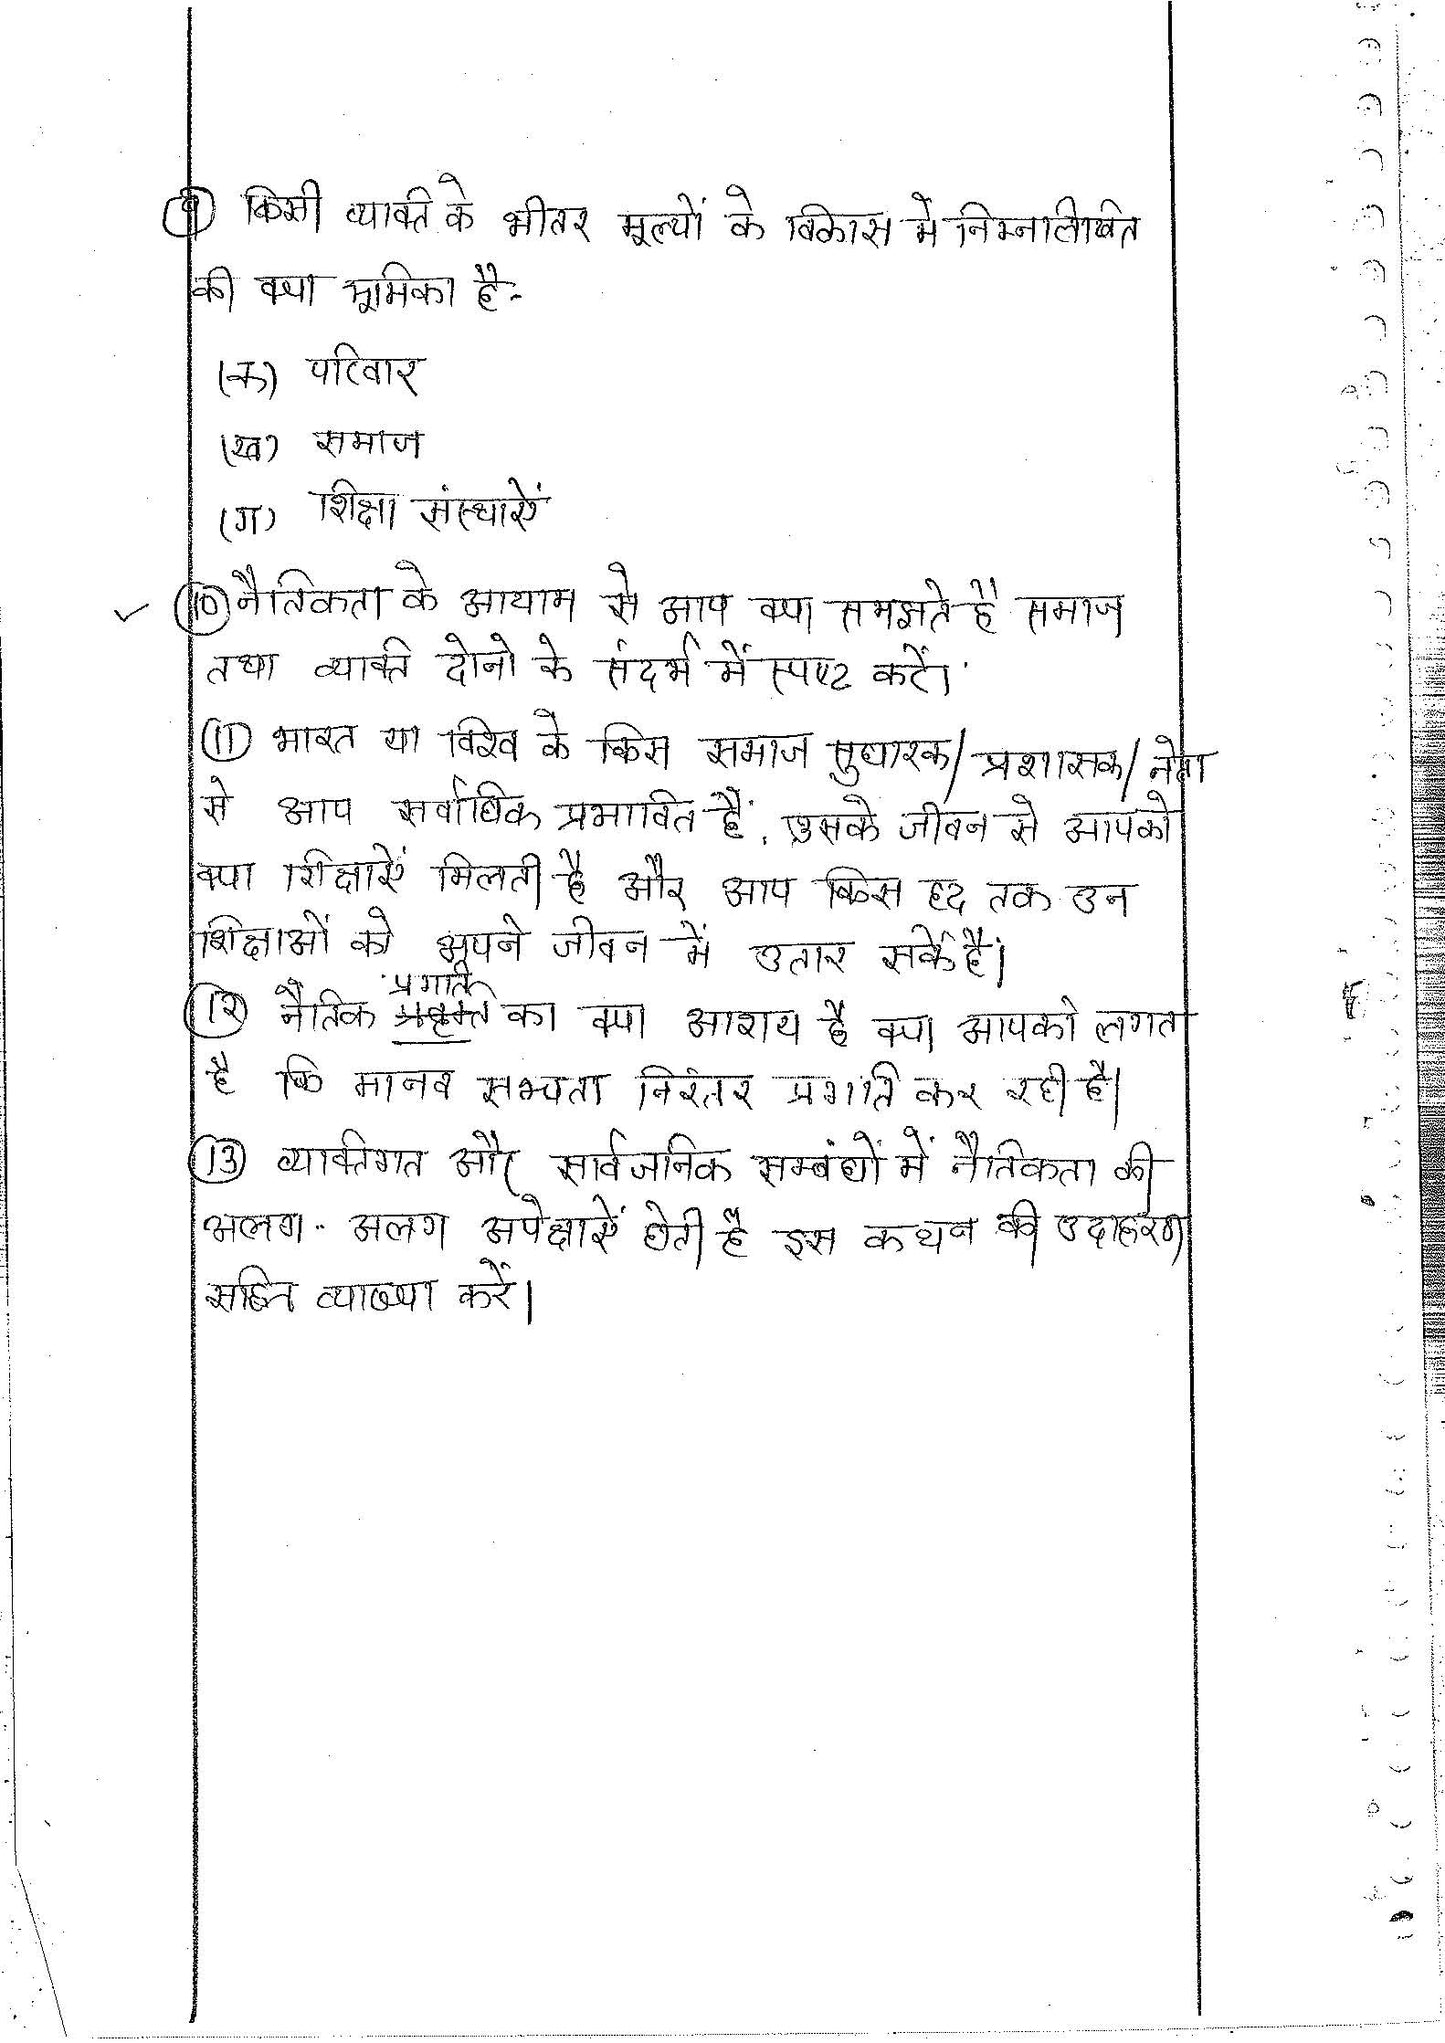 ⑨ किसी व्यक्ति के भीतर मूल्यों के विकास में निम्नलिखित
की क्या भूमिका है-
(क) परिवार
(ख) समाज
(ग) शिक्षा संस्थाऐं
✓ ⑩ नैतिकता के आयाम से आप क्या समझते हैं समाज
तथा व्यक्ति दोनो के संदर्भ में स्पष्ट करें।
⑪ भारत या विश्व के किस समाज सुधारक/प्रशासक/नेता
से आप सर्वाधिक प्रभावित हैं, उसके जीवन से आपको
क्या शिक्षाऐं मिलती है और आप किस हद तक उन
शिक्षाओं को अपने जीवन में उतार सकें है।
⑫ नैतिक प्रगति का क्या आशय है क्या आपको लगता
है कि मानव सभ्यता निरंतर प्रगति कर रही है।
⑬ व्यक्तिगत और सार्वजनिक सम्बंधों में नैतिकता की
अलग- अलग अपेक्षाऐं होती है इस कथन की उदाहरण
सहित व्याख्या करें।